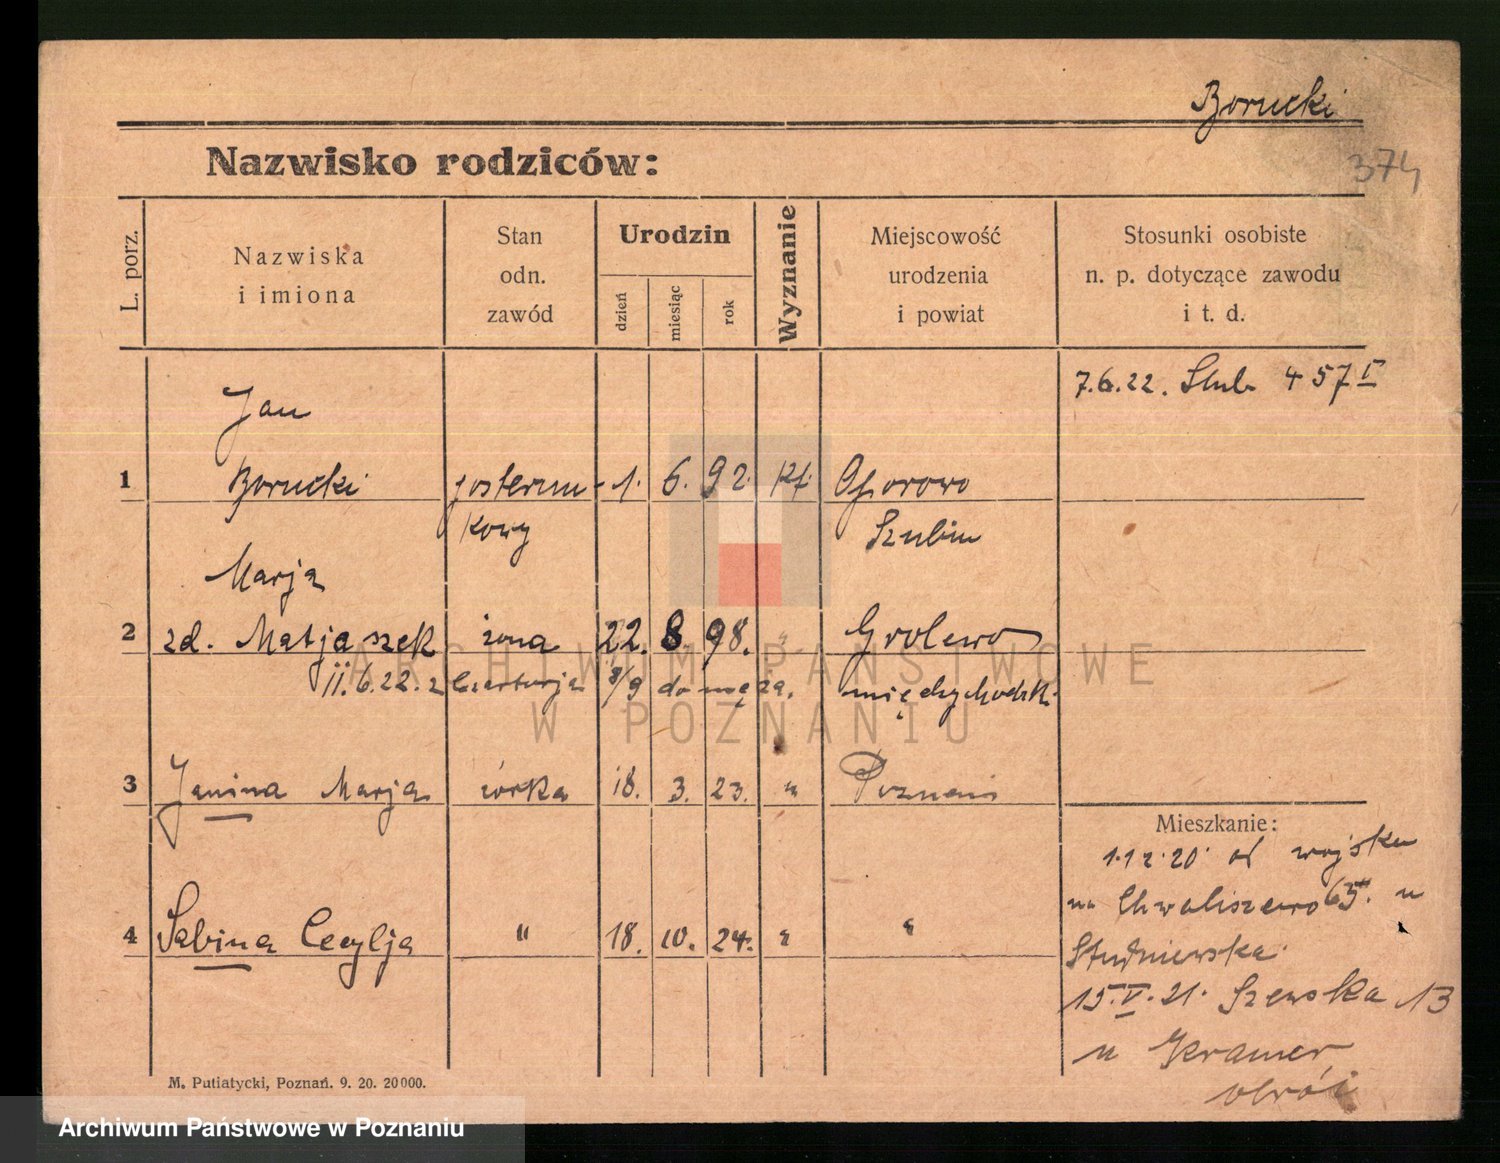 Borucki
Nazwisko rodziców:
374
L. porz.
Nazwiska
i imiona
Stan
odn.
zawód
Urodzin
dzień
miesiąc
rok
Wyznanie
Miejscowość
urodzenia
i powiat
Stosunki osobiste
n. p. dotyczące zawodu
i t. d.
7.6.22. Slub 457 I
Jan
1 Borucki posterun- 1. 6. 92. kt.
kowy Szubin
Marja
2 zd. Matjaszek żona 22. 8. 98. " Grolewo
11.6.22. z 8/9 do męża. międzychodzk.
3 Janina Marja córka 18. 3. 23. " Poznań
Mieszkanie:
1.12.20. od wojska
na Chwaliszewo 65. u
4 Sabina Cecylja " 18. 10. 24. " "
Studniewska.
15.V.21. Szewska 13
u Kramer
M. Putiatycki, Poznań. 9. 20. 20000.
ARCHIWUM PAŃSTWOWE
W POZNANIU
Archiwum Państwowe w Poznaniu